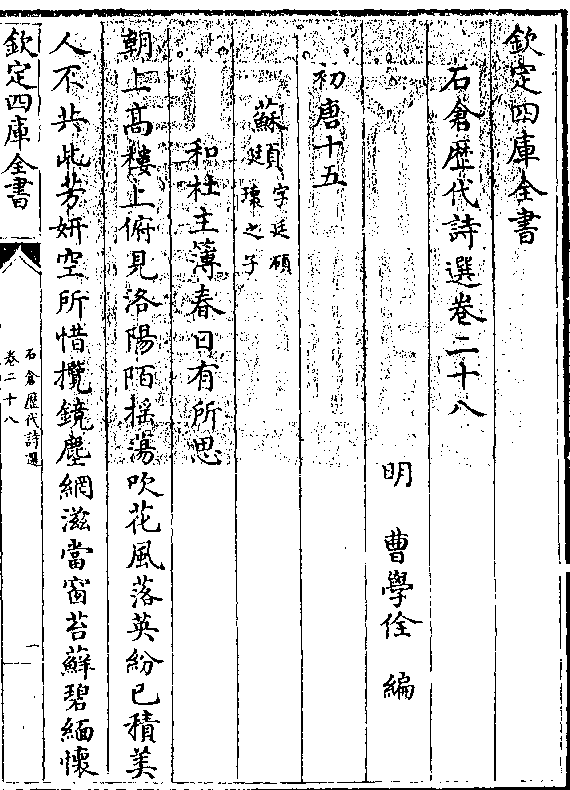 欽定四庫全書
石倉歴代詩選卷二十八
明 曹學佺 編
初唐十五
蘇頲字廷碩
瓌之子
和杜主簿春日有所思
朝上髙樓上俯見洛陽陌揺蕩吹花風落英紛已積美
人不共此芳妍空所惜攬鏡塵網滋當窗苔蘚碧緬懷
欽定四庫全書
石倉歴代詩選
卷二十八
一